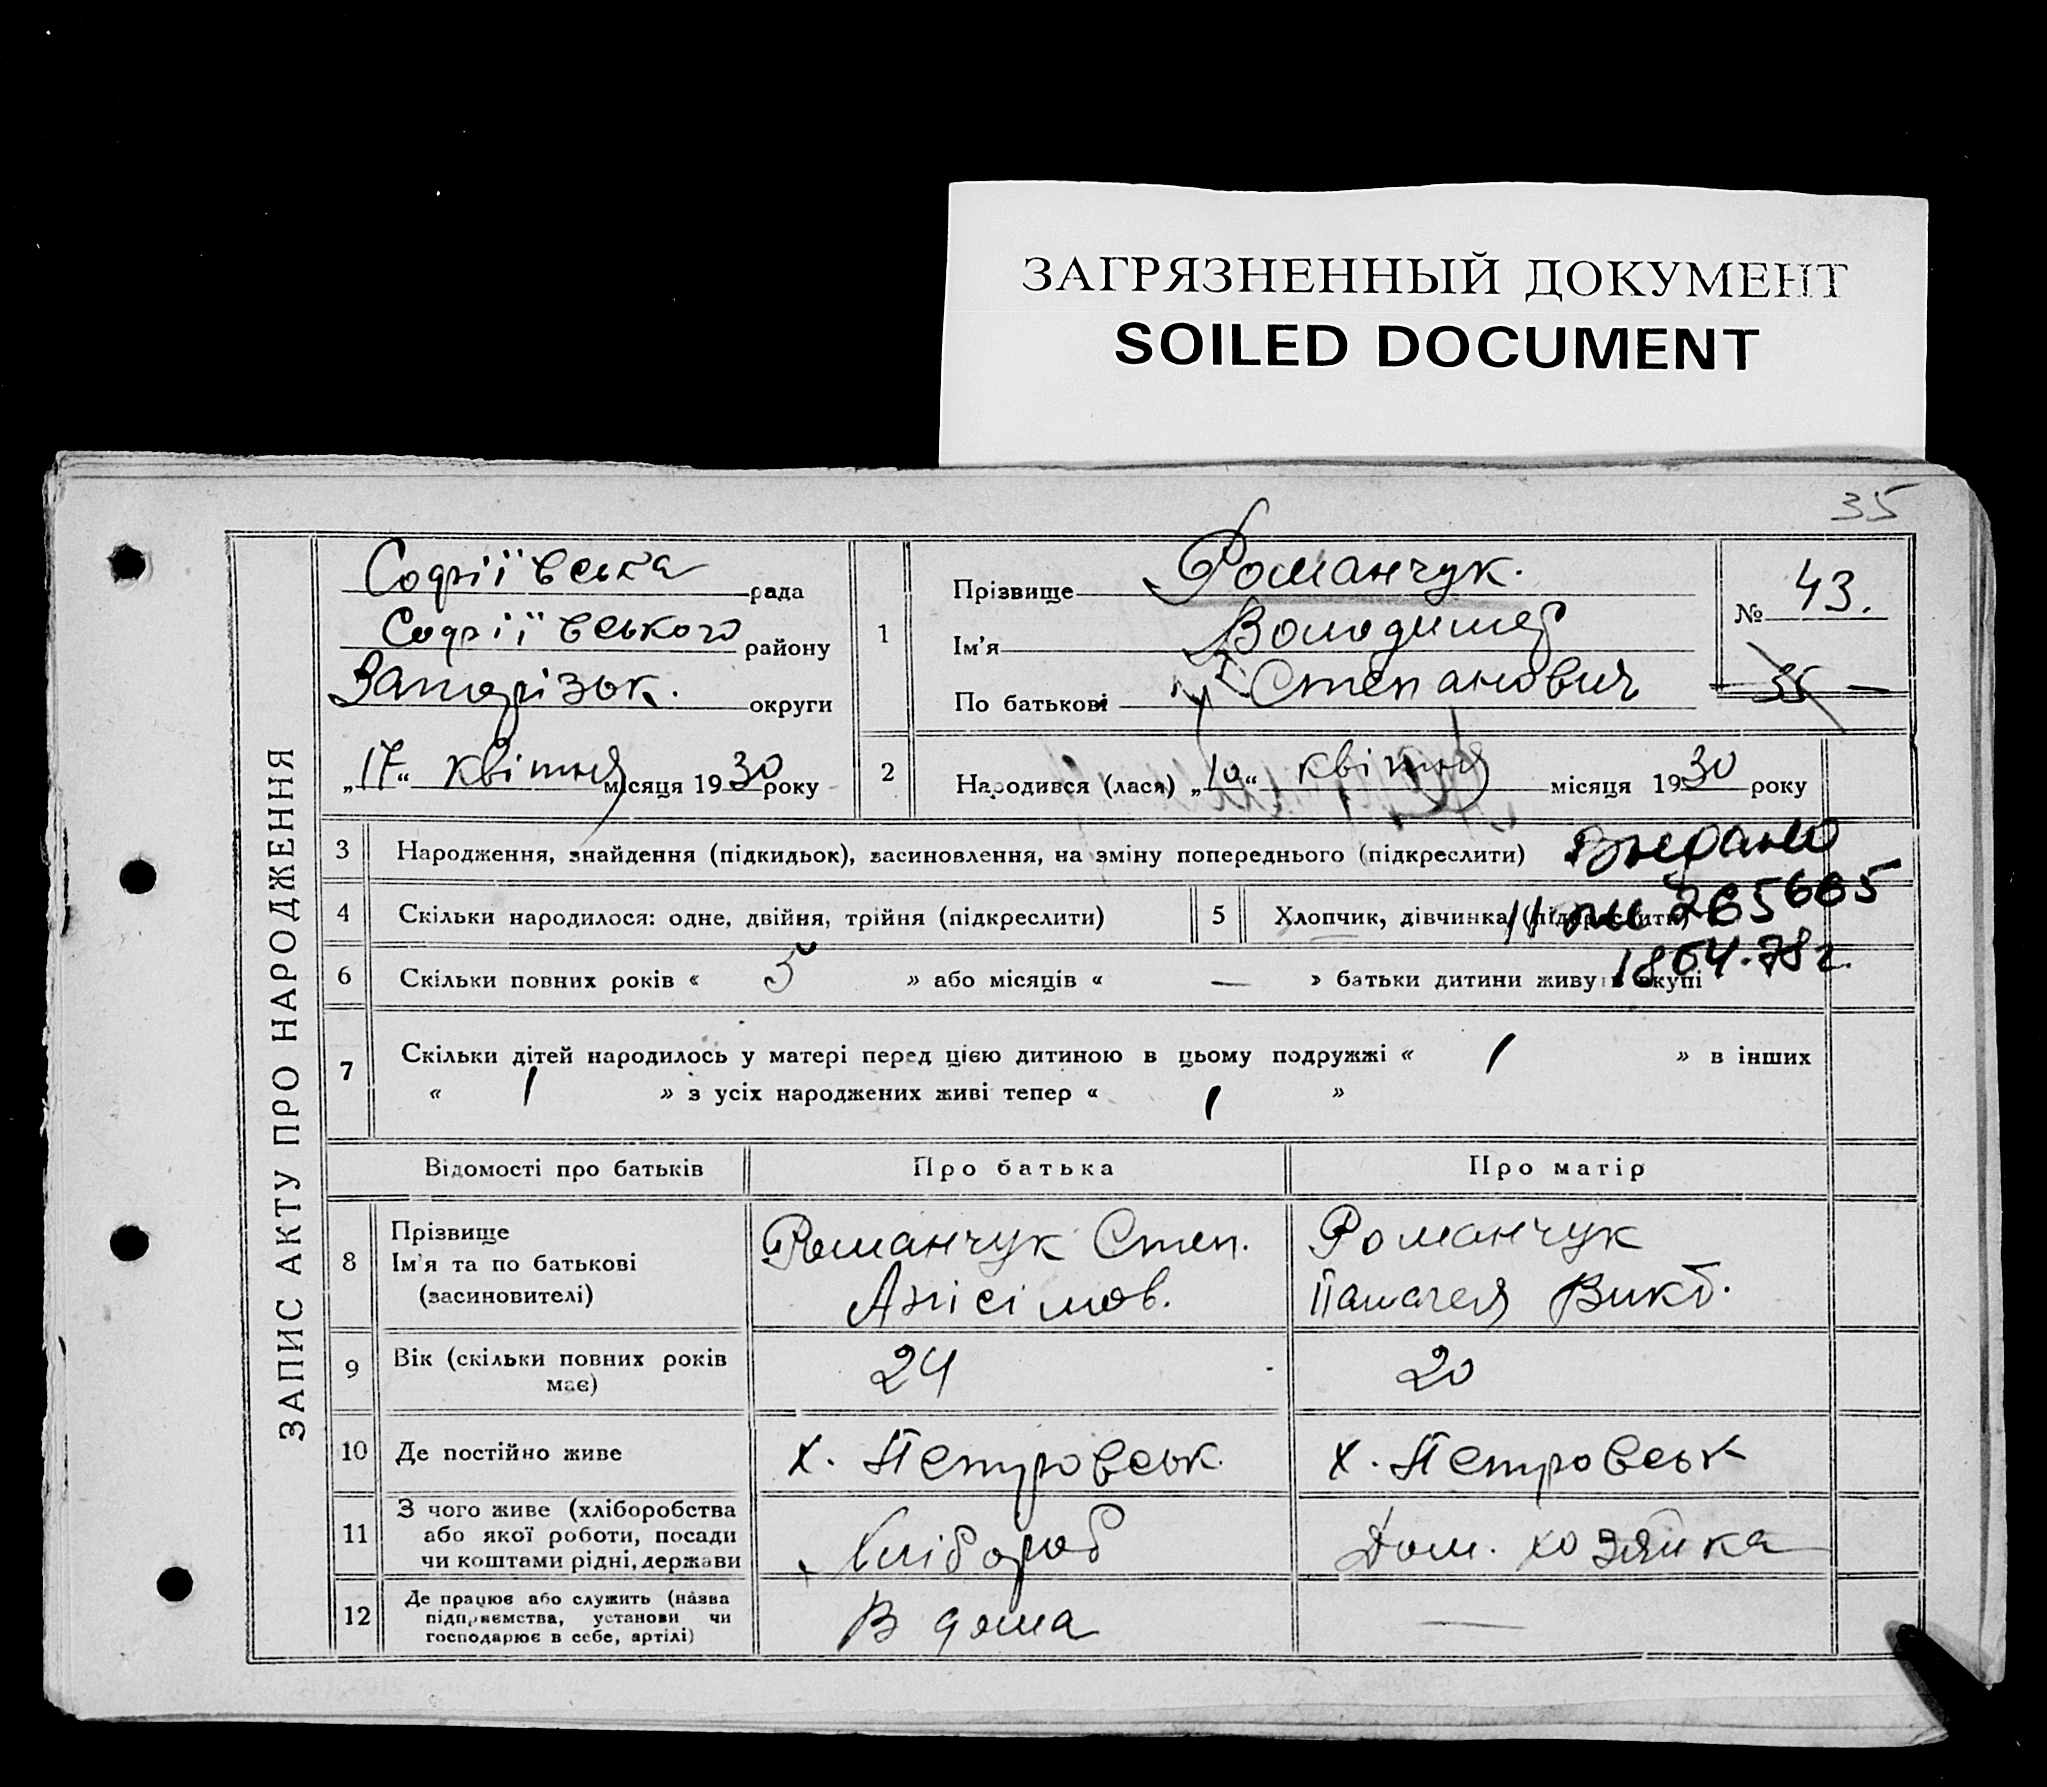 ЗАГРЯЗНЕННЫЙ ДОКУМЕНТ
SOILED DOCUMENT
35
ЗАПИС АКТУ ПРО НАРОДЖЕННЯ
Софіївська рада
Софіївського району
Запорізьк. округи
„17“ квітня місяця 1930 року
1
Прізвище Романчук.
Ім'я Володимер
По батькові Степанович
№ 43.
35
2
Народився (лася) „10“ квітня місяця 1930 року
3 Народження, знайдення (підкидьок), засиновлення, на зміну попереднього (підкреслити)
4 Скільки народилося: одне, двійня, трійня (підкреслити)
5 Хлопчик, дівчинка (підкреслити)
265665
6 Скільки повних років « 5 » або місяців « — » батьки дитини живуть вкупі
7 Скільки дітей народилось у матері перед цією дитиною в цьому подружжі « 1 » в інших
« 1 » з усіх народжених живі тепер « 1 »
Відомості про батьків Про батька Про матір
8 Прізвище
Ім'я та по батькові
(засиновителі)
Романчук Степ.
Анісімов.
Романчук
Палагея Викт.
9 Вік (скільки повних років має) 24 20
10 Де постійно живе х. Петровськ х. Петровськ
11 З чого живе (хліборобства
або якої роботи, посади
чи коштами рідні, держави
Хлібороб Дом. хозяйка
12 Де працює або служить (назва
підприємства, установи чи
господарює в себе, артілі)
В дома —